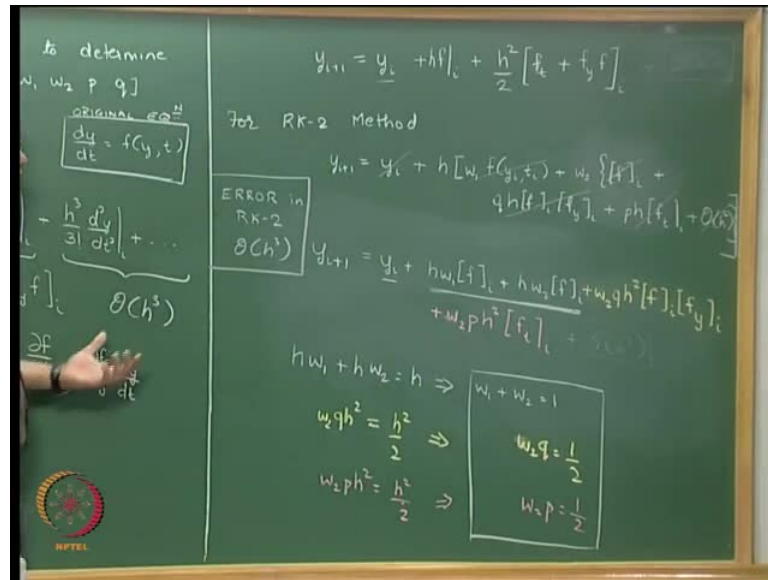 to determine
w₁ w₂ p q]
ORIGINAL EQᴺ
dy/dt = f(y, t)
+ h³/3! d³y/dt³|ᵢ + ...
f]ᵢ O(h³)
∂f
dy/dt
yᵢ₊₁ = yᵢ + hf|ᵢ + h²/2 [fₜ + f_y f]ᵢ
For RK-2 Method
yᵢ₊₁ = yᵢ + h[w₁ f(yᵢ, tᵢ) + w₂ {[f]ᵢ +
qh[f]ᵢ[f_y]ᵢ + ph[fₜ]ᵢ + O(h²)}]
ERROR in
RK-2
O(h³)
yᵢ₊₁ = yᵢ + hw₁[f]ᵢ + hw₂[f]ᵢ + w₂qh²[f]ᵢ[f_y]ᵢ
+ w₂ph²[fₜ]ᵢ
hw₁ + hw₂ = h ⇒ w₁ + w₂ = 1
w₂qh² = h²/2 ⇒ w₂q = 1/2
w₂ph² = h²/2 ⇒ w₂p = 1/2
NPTEL